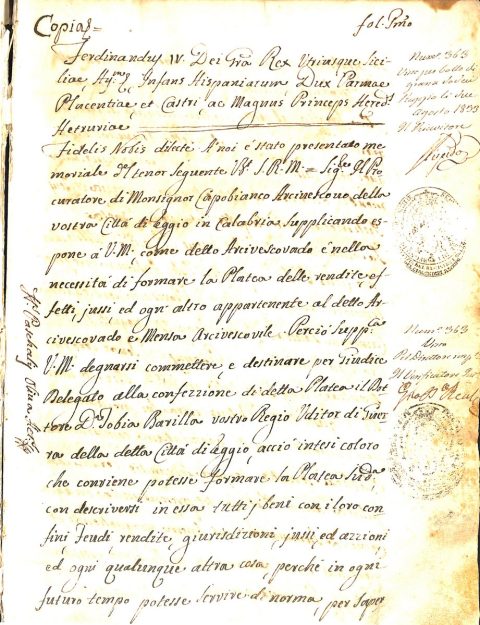 Copia=
fol: Pmo
Ferdinandus IV. Dei Gra Rex Utriusque Sici-
liae Hyrm &, Infans Hispaniarum Dux Parmae
Placentiae et Castri, ac Magnus Princeps Heredis
Hetruriae
Fidelis Nobis dilecte. A noi è stato presentato me-
moriale Il tenor seguente Vz. S.R.M.= Sigre Il Pro
curatore di Monsignor Capobianco Arcivescovo della
vostra Città di Reggio in Calabria supplicando es-
pone à V.M., come detto Arcivescovado è nella
necessità di formare la Platea delle rendite, ef-
fetti, jussi, ed ogn'altro appartenente al detto Ar
civescovado e Mensa Arcivescovile. Perciò suppca
V.M. degnarsi commettere, e destinare per Giudice
Delegato alla confezzione di detta Platea il Dot
tore D. Tobia Barilla vostro Regio Uditor di Guer
ra della detta Città di Reggio, acciò intesi coloro
che conviene potesse formare la Platea sudta
con descriversi in essa tutti i beni con il loro con
fini, Feudi, rendite, giurisdizioni, jussi, ed azzioni
ed ogni qualunque altra cosa, perché in ogni
futuro tempo potesse servire di norma, per saper
Numo 363
Visto per bollo di
grana
Reggio li due
Agosto 1833
Il Ricevitore
Numo 363